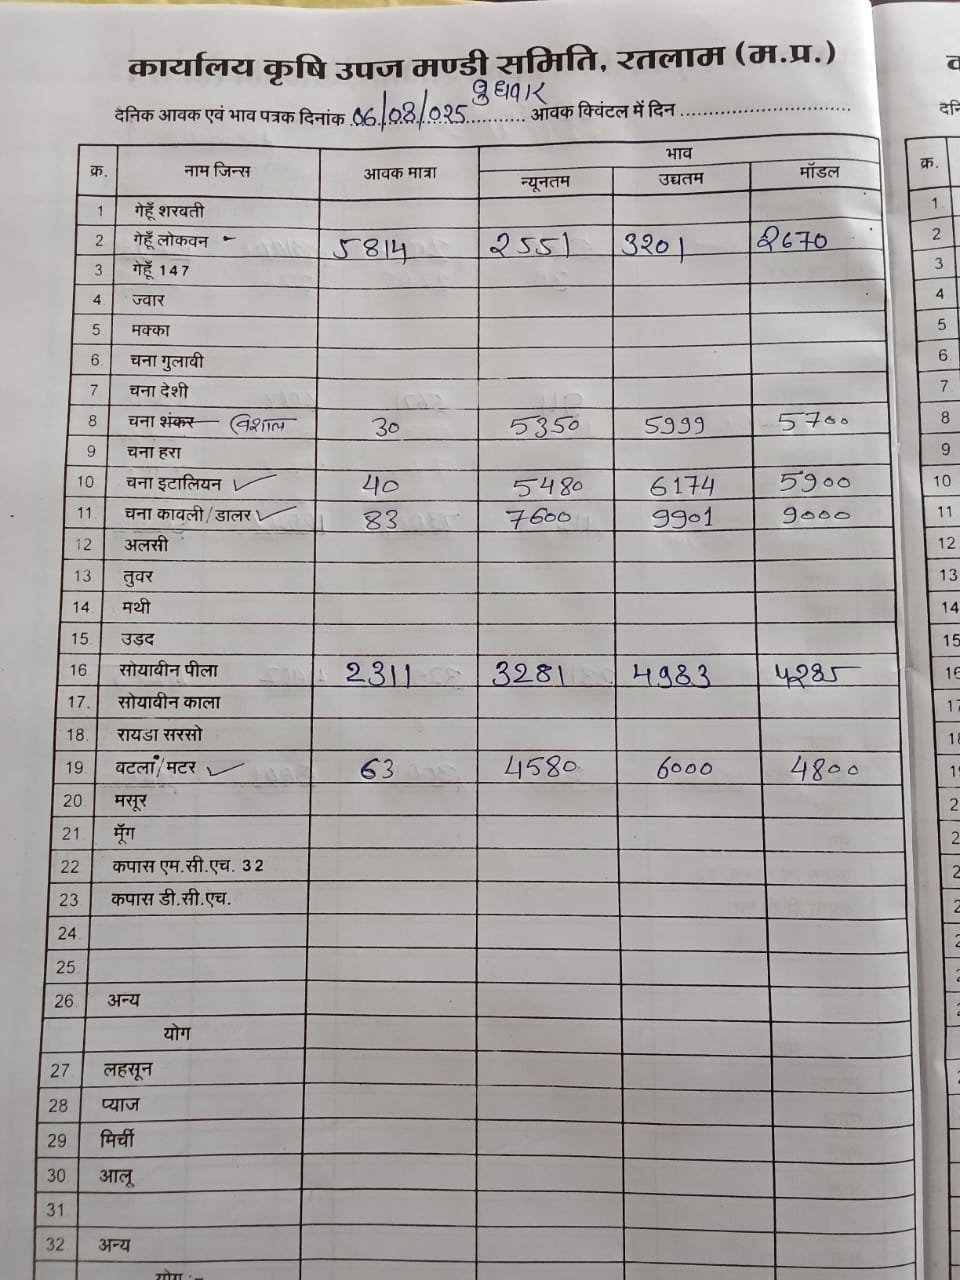 कार्यालय कृषि उपज मण्डी समिति, रतलाम (म.प्र.)
बुधवार
दैनिक आवक एवं भाव पत्रक दिनांक 06/08/025 आवक क्विंटल में दिन
क्र. नाम जिन्स आवक मात्रा भाव
न्यूनतम उच्चतम मॉडल
1 गेहूँ शरवती
2 गेहूँ लोकवन 5814 2551 3201 2670
3 गेहूँ 147
4. ज्वार
5 मक्का
6. चना गुलावी
7 चना देशी
8 चना शंकर विशाल 30 5350 5999 5700
9 चना हरा
10 चना इटालियन ✓ 40 5480 6174 5900
11. चना कावली/डालर ✓ 83 7600 9901 9000
12 अलसी
13 तुवर
14. मथी
15. उड़द
16 सोयावीन पीला 2311 3281 4983 4285
17. सोयावीन काला
18. रायडा सरसो
19. वटला/मटर ✓ 63 4580 6000 4800
20. मसूर
21 मूँग
22 कपास एम.सी.एच. 32
23. कपास डी.सी.एच.
24.
25.
26. अन्य
योग
27 लहसून
28 प्याज
29. मिर्ची
30. आलू
31
32 अन्य
योग :-
क्र.
1.
2
3
4
5
6.
7.
8
9
10
11
12
13
14
15